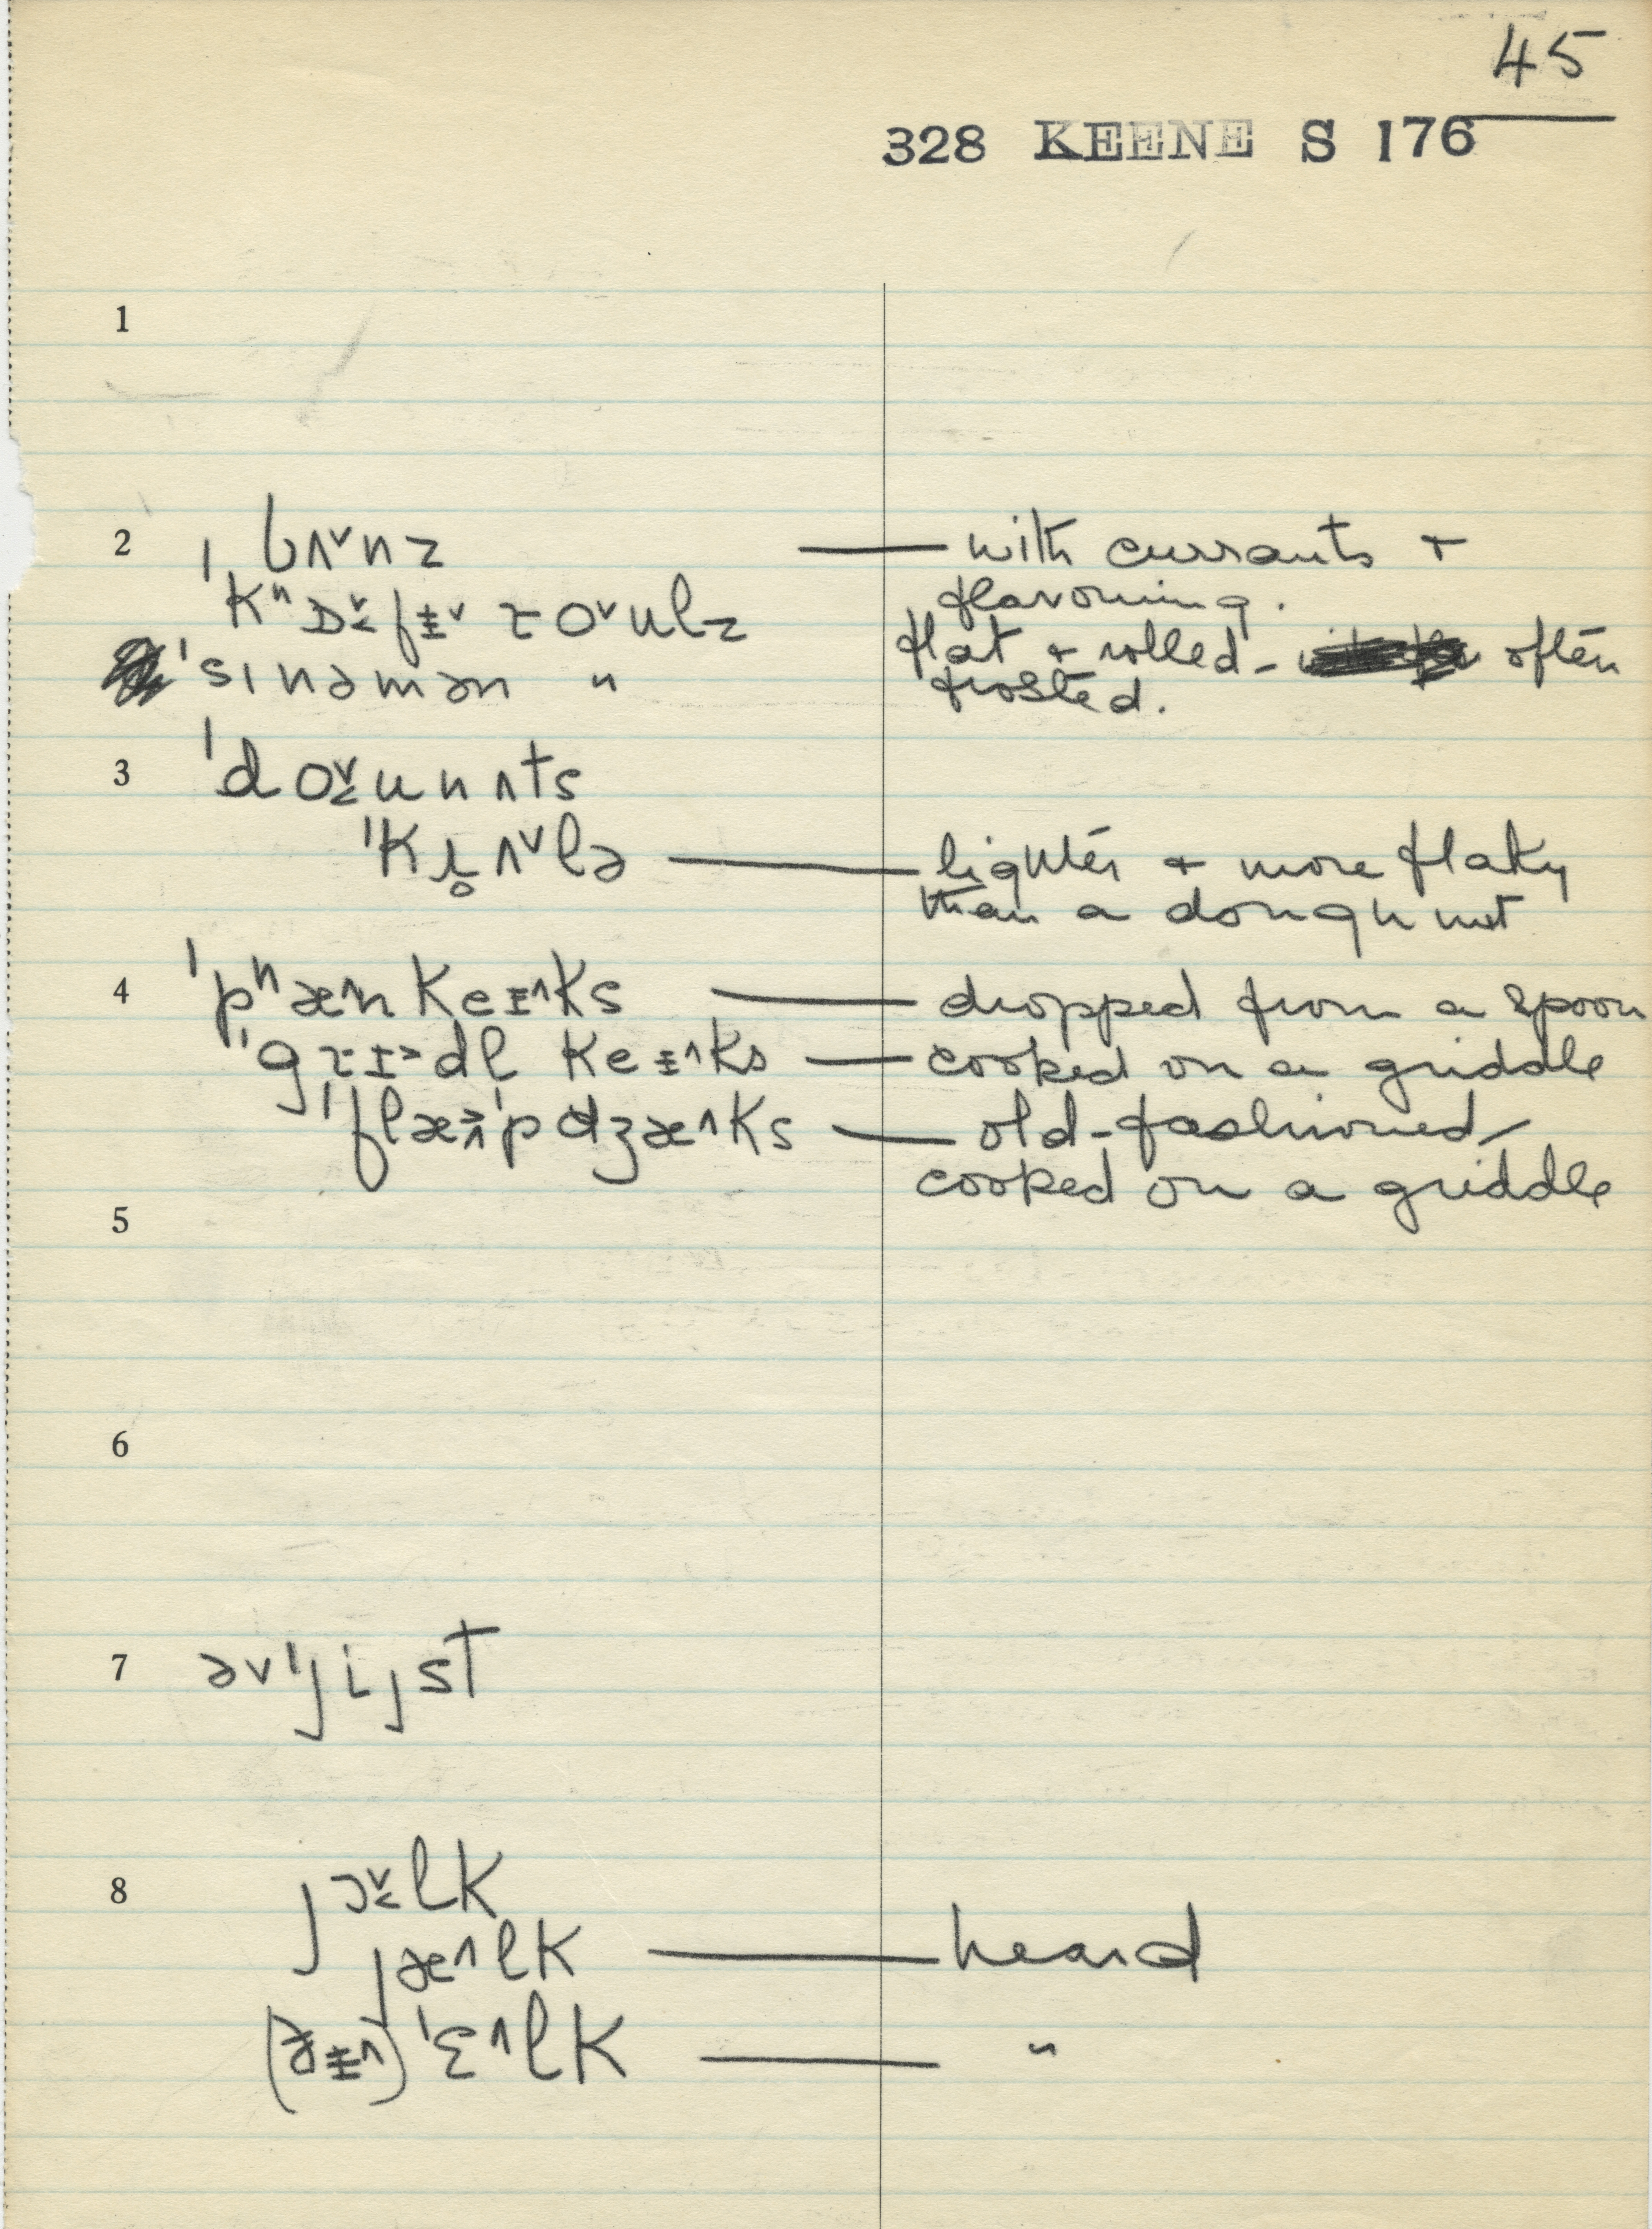 45
328 KEENE S 176
1
2 bʌ˅nz — with currants +
flavouring.
ˈkʰɒ˅fɪ˅ ɾo˅ulz flat + rolled - often
ˈsɪnəmən " frosted.
3 ˈdo˅unʌts
ˈkɹ̥ʌ˅lə — lighter + more flaky
than a doughnut
4 ˈpʰæ˄nkeɪ˄ks — dropped from a spoon
ˈgɾɪ˃dl keɪ˄ks — cooked on a griddle
ˈflæ˄pˈdʒæ˄ks — old-fashioned
cooked on a griddle
5
6
7 əvˈjijsT
8 jɔ˅lk
jæ˄lk — heard
(ðɪ˄) ˈɛ˄lk — "